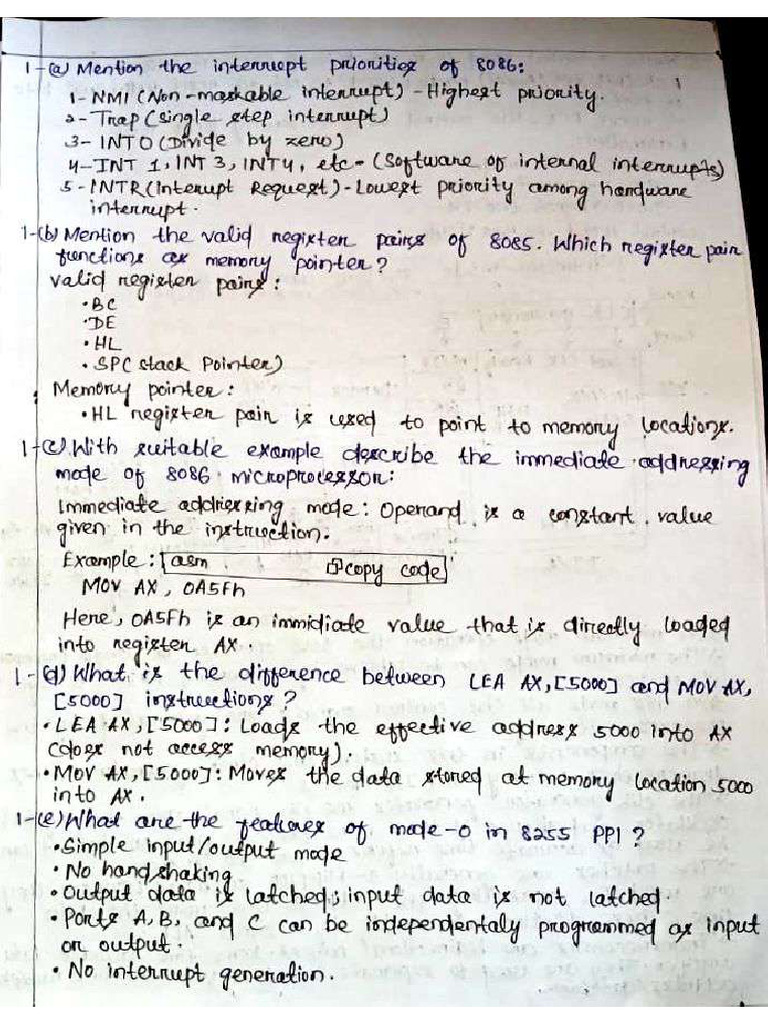 1-(a) Mention the interrupt priorities of 8086:
1- NMI (Non-maskable interrupt) - Highest priority.
2- Trap (single step interrupt)
3- INTO (Divide by zero)
4- INT 1, INT 3, INT4, etc- (Software of internal interrupts)
5- INTR (Interupt Request) - Lowest priority among hardware
interrupt.
1-(b) Mention the valid register pairs of 8085. Which register pair
functions as memory pointer?
valid register pairs:
• BC
• DE
• HL
• SPC stack Pointer)
Memory pointer:
• HL register pair is used to point to memory locations.
1-(c) With suitable example describe the immediate addressing
mode of 8086 microprocessor:
Immediate addressing mode: Operand is a constant value
given in the instruction.
Example: asm copy code
MOV AX, 0A5Fh
Here, 0A5Fh is an immidiate value that is directly loaded
into register AX.
1-(d) What is the difference between LEA AX, [5000] and MOV AX,
[5000] instructions?
• LEA AX, [5000]: Loads the effective address 5000 into AX
(does not access memory).
• MOV AX, [5000]: Moves the data stored at memory location 5000
into AX.
1-(e) What are the features of mode-0 in 8255 PPI?
• Simple input/output mode
• No handshaking
• Output data is latched; input data is not latched.
• Ports A, B, and C can be independentaly programmed as input
or output.
• No interrupt generation.